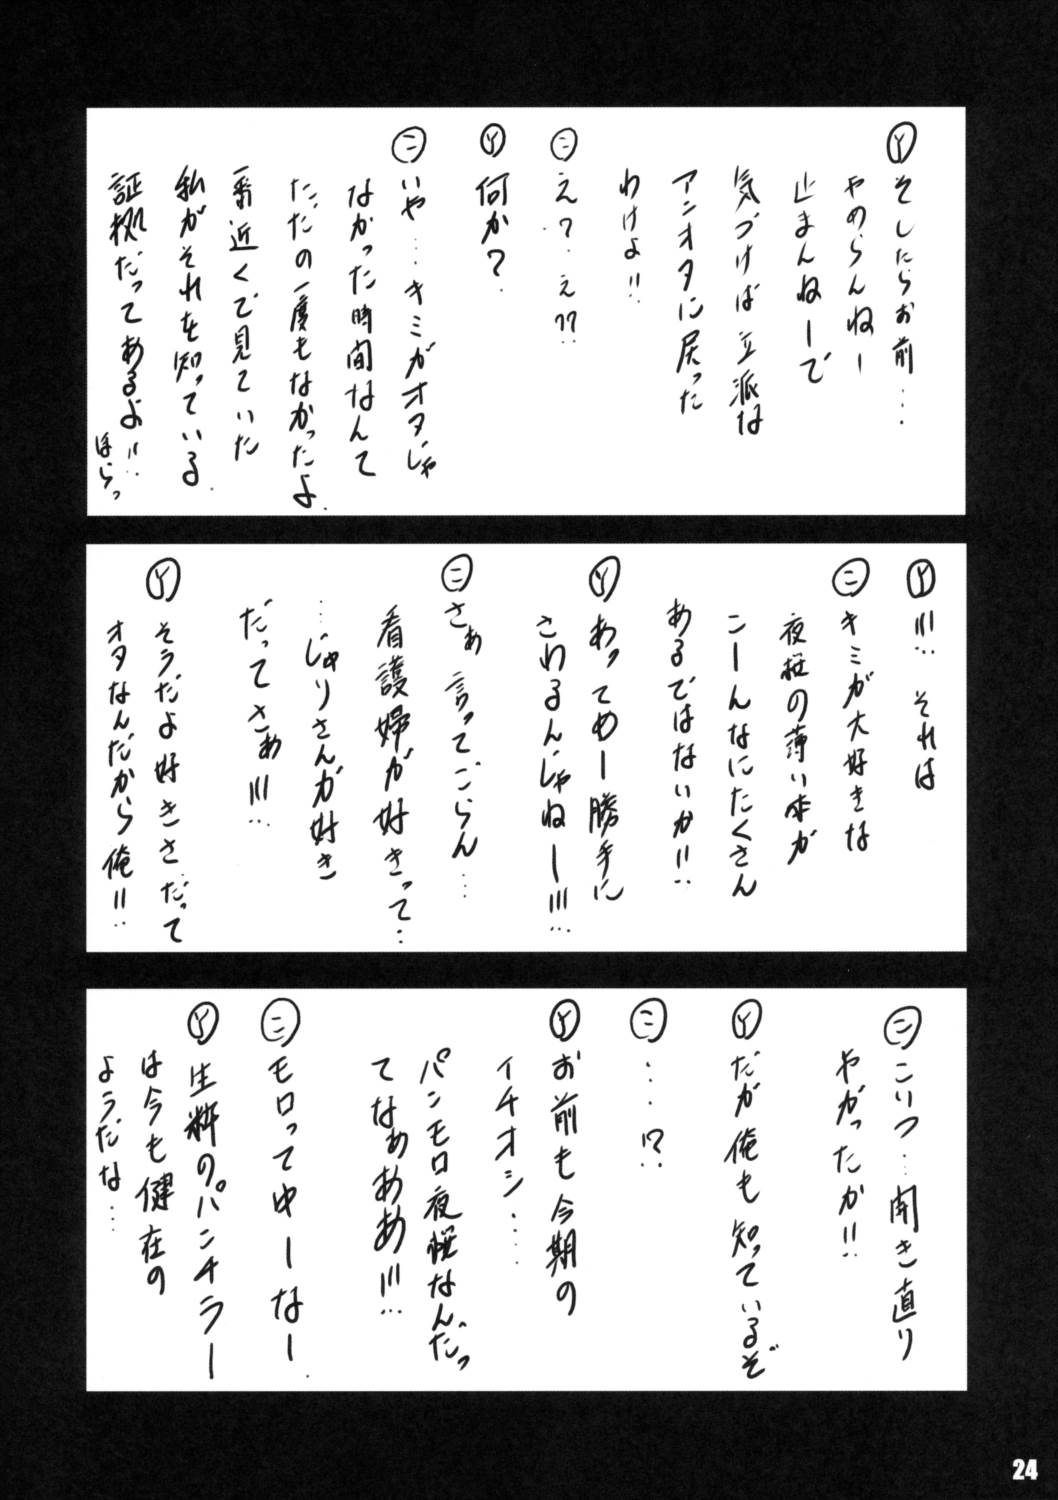 Ⓨそしたらお前…
やめらんねー
止まんねーで
気づけば立派な
アニオタに戻った
わけよ!!
㊁え？え??
Ⓨ何か？
㊁いや…キミがオタじゃ
なかった時間なんて
ただの一度もなかったよ
一番近くで見ていた
私がそれを知っている
証拠だってあるよ!!
ほらっ
Ⓨ!!!それは
㊁キミが大好きな
夜桜の薄い本が
こーんなにたくさん
あるではないか!!
Ⓨあってめー勝手に
さわるんじゃねー!!!
㊁さぁ言ってごらん…
看護婦が好きって…
…じゅりさんが好き
だってさぁ!!!
Ⓨそうだよ好きさだって
オタなんだから俺!!
㊁こいつ…開き直り
やがったか!!
Ⓨだが俺も知っているぞ
㊁…!?
Ⓨお前も今期の
イチオシ…
パンモロ夜桜なんだっ
てなぁああ!!!
㊁モロってゆーなー
Ⓨ生粋のパンチラー
は今も健在の
ようだな…
24